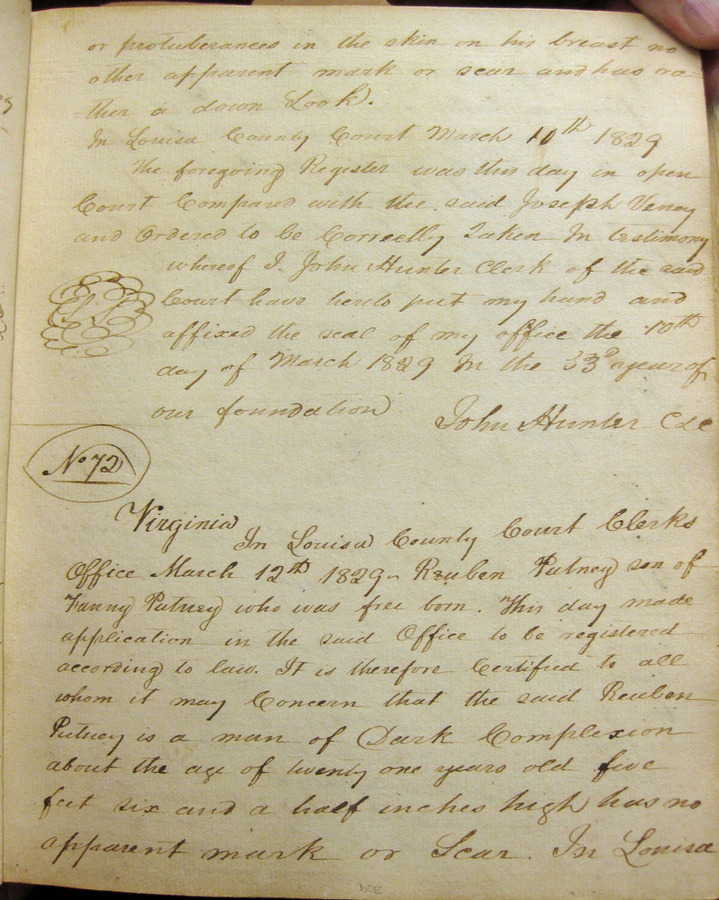 or protuberances in the skin on his breast no
other apparent mark or scar and has ra-
-ther a down Look.
In Louisa County Court March 10th 1829
The foregoing Register was this day in open
Court Compared with the said Joseph Veney
and Ordered to be Correctly Taken In testimony
whereof I. John Hunter Clerk of the said
Court have hereto put my hand and
affixed the seal of my office the 10th
day of March 1829 In the 53d year of
our foundation
John Hunter
No 72
Virginia
In Louisa County Court Clerks
Office March 12th 1829 - Reuben Putney son of
Fanny Putney who was free born. This day made
application in the said Office to be registered
according to law. It is therefore Certified to all
whom it may Concern that the said Reuben
Putney is a man of Dark Complexion
about the age of twenty one years old five
feet six and a half inches high has no
apparent mark or Scar. In Louisa